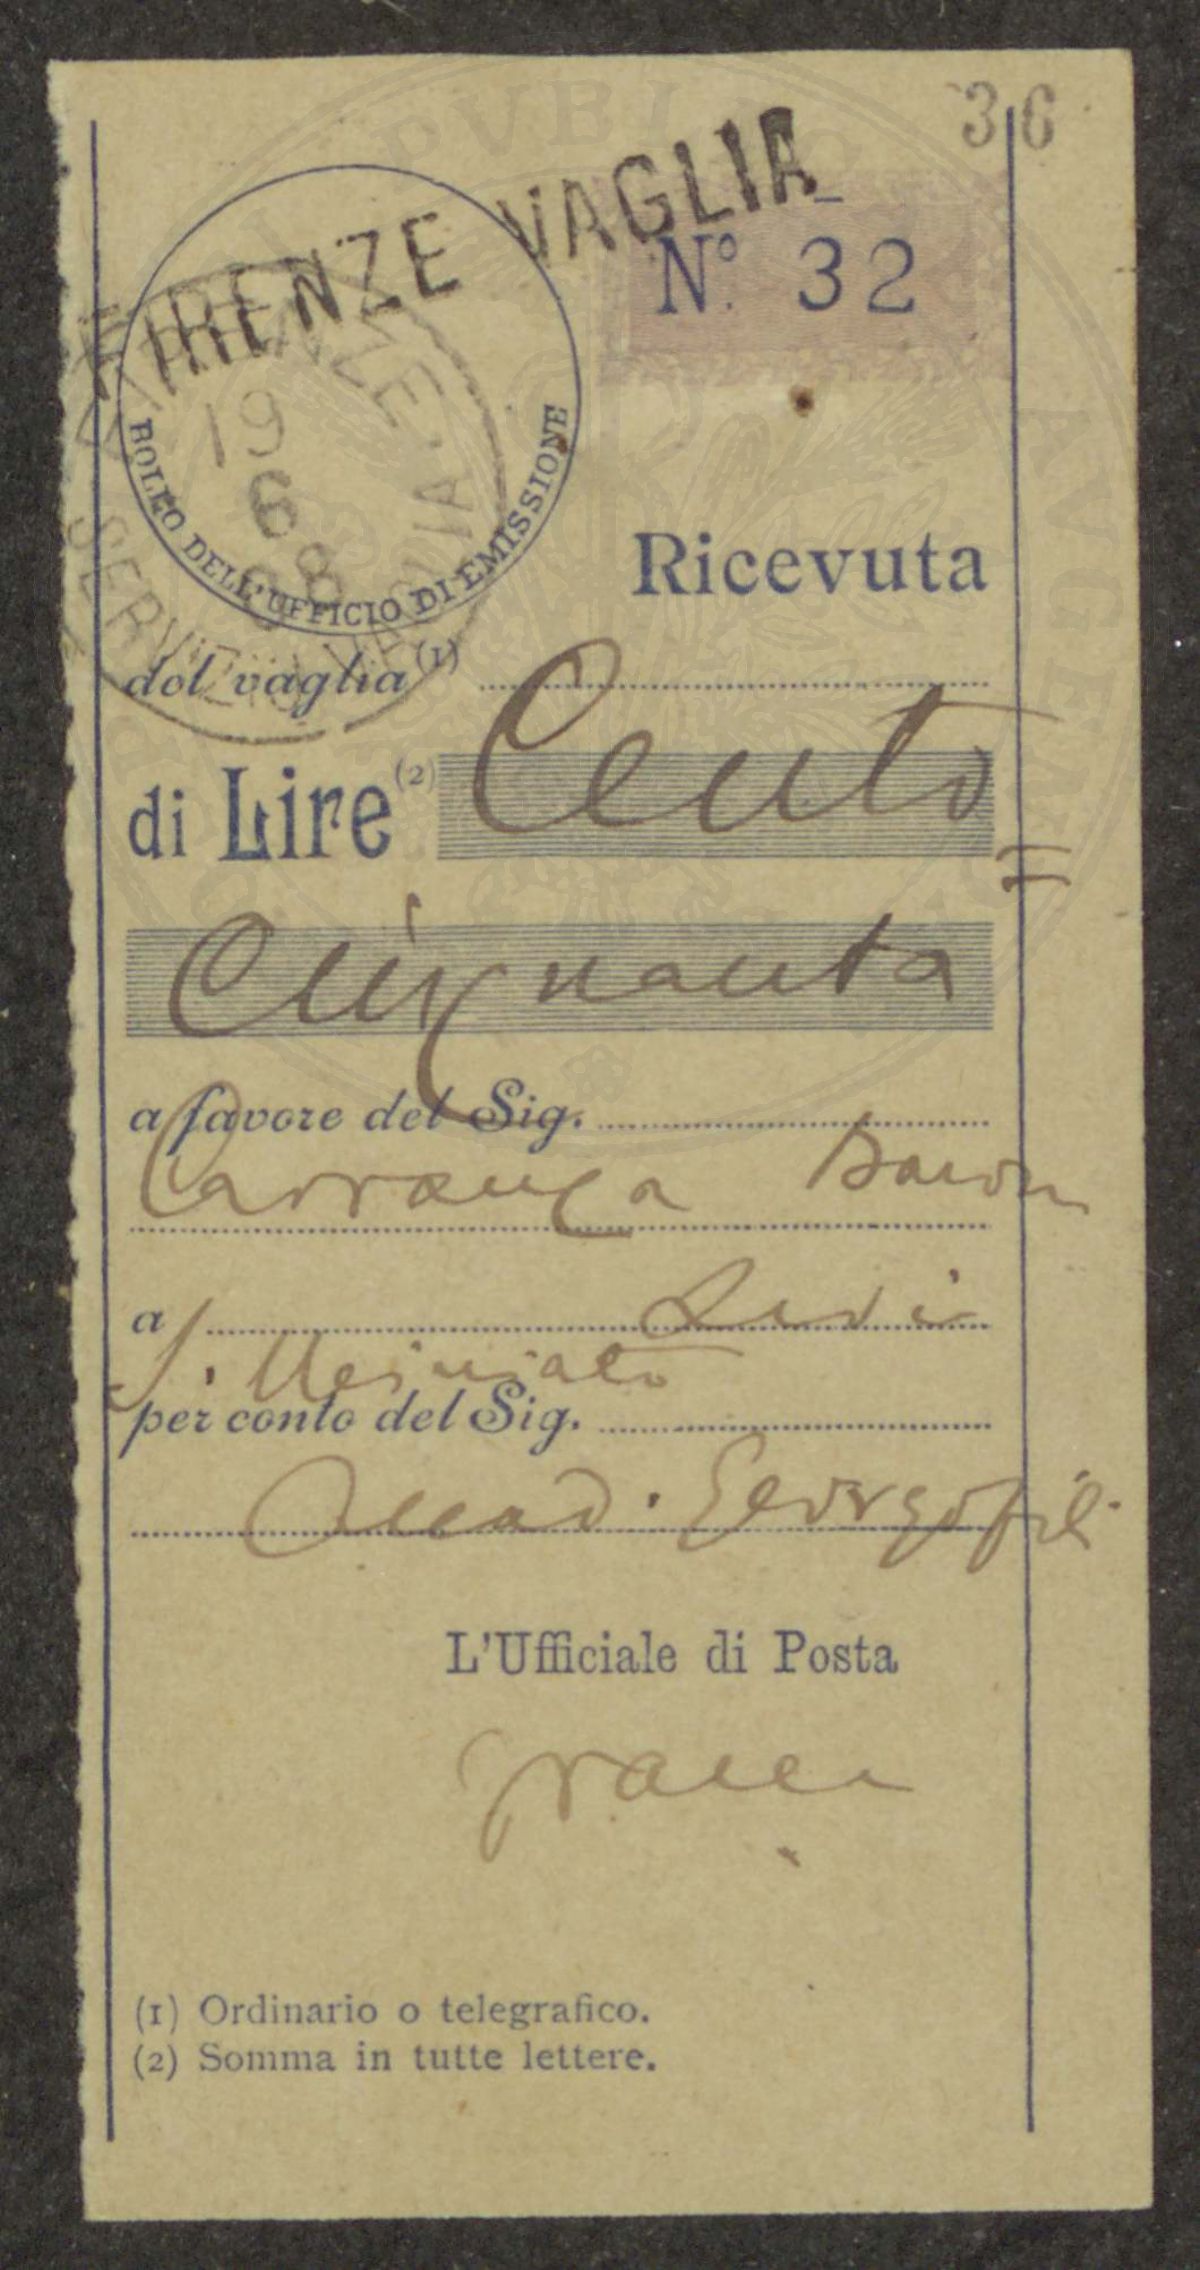 36
FIRENZE VAGLIA
Nº. 32
19
6
BOLLO DELL'UFFICIO DI EMISSIONE
Ricevuta
del vaglia (1)
di Lire (2) Cento
=
Cinquanta
a favore del Sig.
Carranza
a
S. Miniato
per conto del Sig.
Accad. Georgofili
L'Ufficiale di Posta
(1) Ordinario o telegrafico.
(2) Somma in tutte lettere.